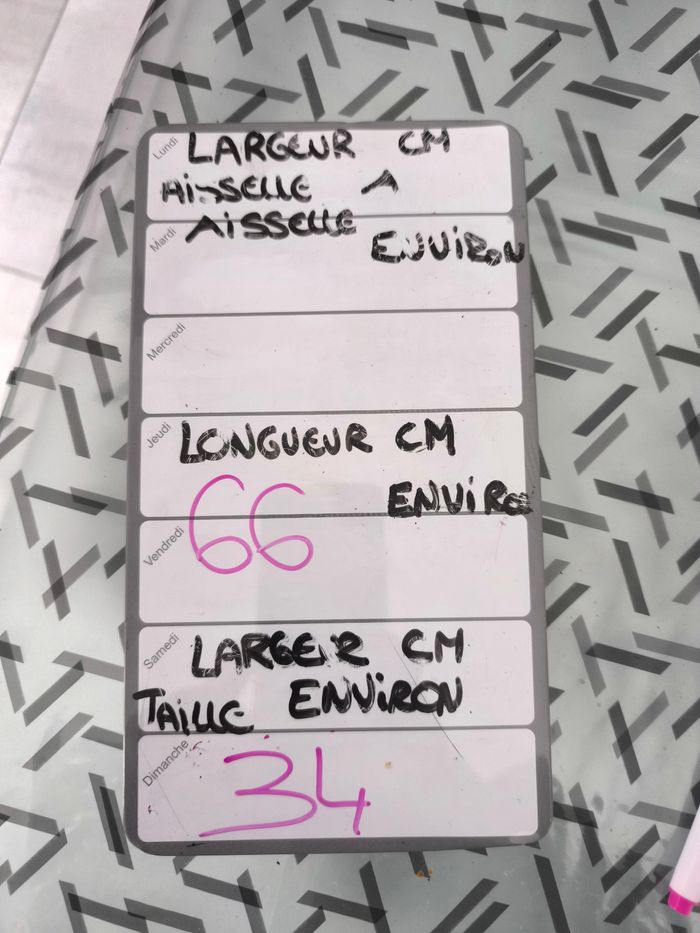 Lundi
LARGEUR CM
AISSELLE A
Mardi
AISSELLE
ENVIRON
Mercredi
Jeudi
LONGUEUR CM
66
ENVIRO
Vendredi
Samedi
LARGEUR CM
TAILLE ENVIRON
Dimanche
34